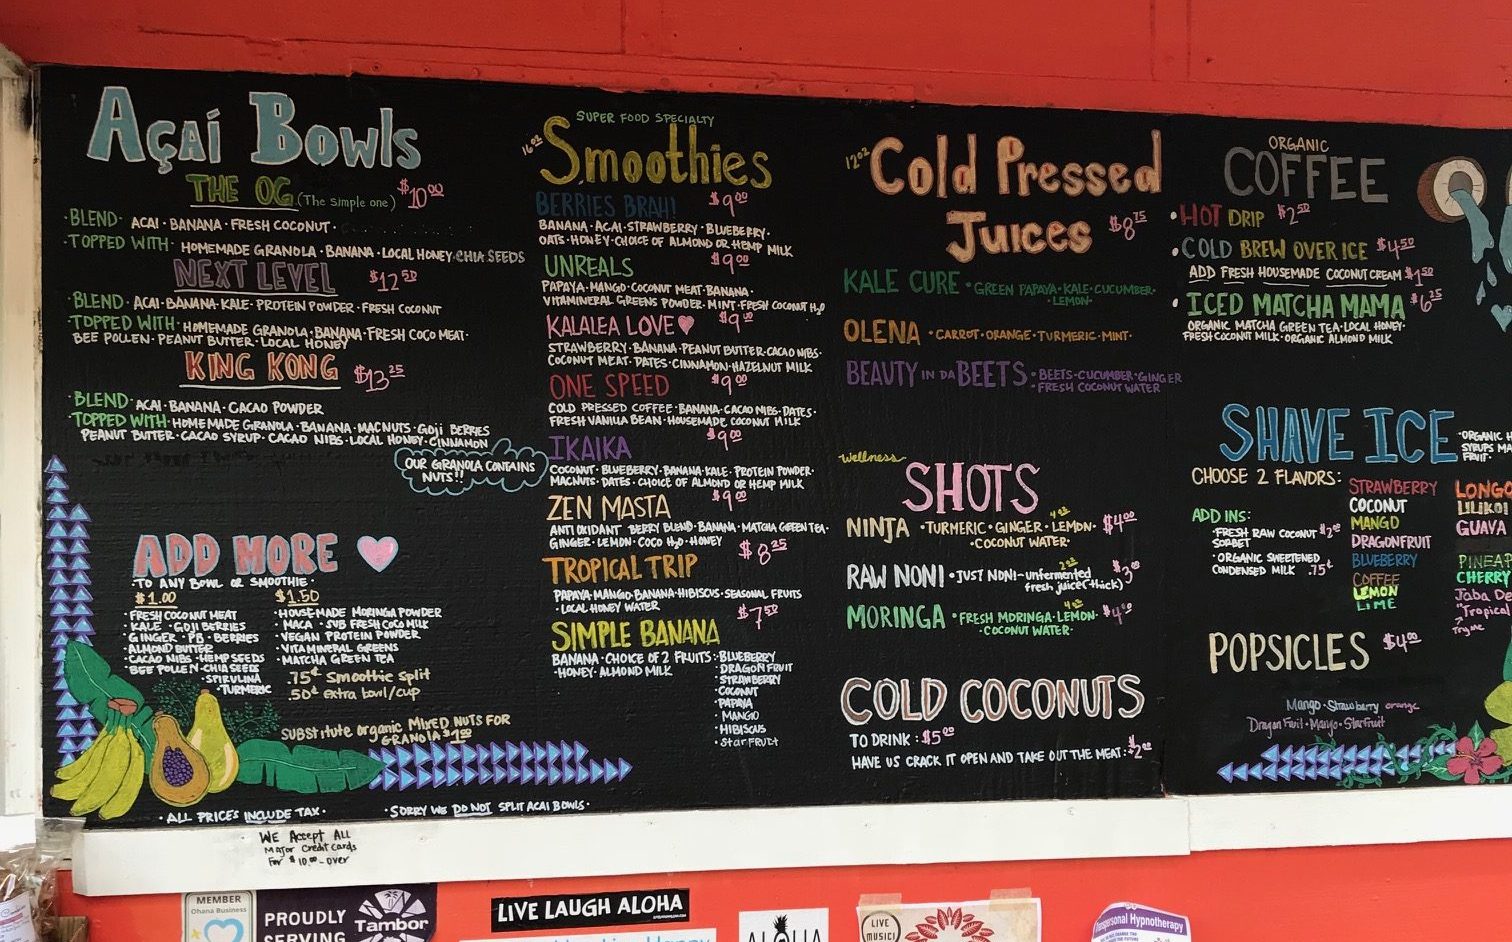 Açaí Bowls
THE OG (The simple one) $10.00
·BLEND· ACAI·BANANA·FRESH COCONUT·
·TOPPED WITH· HOMEMADE GRANOLA·BANANA·LOCAL HONEY·CHIA SEEDS
NEXT LEVEL $12.50
·BLEND· ACAI·BANANA·KALE·PROTEIN POWDER·FRESH COCONUT
·TOPPED WITH·HOMEMADE GRANOLA·BANANA·FRESH COCO MEAT·
BEE POLLEN·PEANUT BUTTER·LOCAL HONEY
KING KONG $13.25
·BLEND· ACAI·BANANA·CACAO POWDER
·TOPPED WITH·HOMEMADE GRANOLA·BANANA·MACNUTS·GOJI BERRIES
PEANUT BUTTER·CACAO SYRUP·CACAO NIBS·LOCAL HONEY·CINNAMON
OUR GRANOLA CONTAINS
NUTS!!
ADD MORE
·TO ANY BOWL OR SMOOTHIE·
$1.00
·FRESH COCONUT MEAT
·KALE·GOJI BERRIES
·GINGER·PB·BERRIES
·ALMOND BUTTER
·CACAO NIBS·HEMP SEEDS
·BEE POLLEN·CHIA SEED
·SPIRULINA
·TURMERIC
$1.50
·HOUSE-MADE MORINGA POWDER
·MACA·SUB FRESH COCO MILK
·VEGAN PROTEIN POWDER
·VITAMINERAL GREENS
·MATCHA GREEN TEA
.75¢ Smoothie split
.50¢ extra bowl/cup
SUBSTITUTE organic MIXED NUTS FOR
GRANOLA $1.00
·ALL PRICES INCLUDE TAX·
·SORRY WE DO NOT SPLIT ACAI BOWLS·
WE Accept ALL
Major Credit cards
For $10.00-over
SUPER FOOD SPECIALTY
16oz Smoothies
BERRIES BRAH! $9.00
BANANA·ACAI·STRAWBERRY·BLUEBERRY·
OATS·HONEY·CHOICE OF ALMOND OR HEMP MILK
UNREALS $9.00
PAPAYA·MANGO·COCONUT MEAT·BANANA·
VITAMINERAL GREENS POWDER·MINT·FRESH COCONUT H2O
KALALEA LOVE $9.00
STRAWBERRY·BANANA·PEANUT BUTTER·CACAO NIBS·
COCONUT MEAT·DATES·CINNAMON·HAZELNUT MILK
ONE SPEED $9.00
COLD PRESSED COFFEE·BANANA·CACAO NIBS·DATES·
FRESH VANILLA BEAN·HOUSEMADE COCONUT MILK
IKAIKA $9.00
COCONUT·BLUEBERRY·BANANA·KALE·PROTEIN POWDER·
MACNUTS·DATES·CHOICE OF ALMOND OR HEMP MILK
ZEN MASTA $9.00
ANTIOXIDANT BERRY BLEND·BANANA·MATCHA GREEN TEA·
GINGER·LEMON·COCO H2O·HONEY
TROPICAL TRIP $8.25
PAPAYA·MANGO·BANANA·HIBISCUS·SEASONAL FRUITS
·LOCAL HONEY WATER
SIMPLE BANANA $7.50
BANANA·CHOICE OF 2 FRUITS:·BLUEBERRY
·HONEY·ALMOND MILK ·DRAGON FRUIT
·STRAWBERRY
·COCONUT
·PAPAYA
·MANGO
·HIBISCUS
·STARFRUIT
12oz Cold Pressed
Juices $8.75
KALE CURE ·GREEN PAPAYA·KALE·CUCUMBER·
·LEMON·
OLENA ·CARROT·ORANGE·TURMERIC·MINT·
BEAUTY IN DA BEETS:·BEETS·CUCUMBER·GINGER
FRESH COCONUT WATER
wellness
SHOTS
NINJA ·TURMERIC·GINGER·LEMON· 4oz $4.00
·COCONUT WATER·
RAW NONI ·JUST NONI-unfermented 2oz $3.00
fresh juice(thick)
MORINGA ·FRESH MORINGA·LEMON· 4oz $4.00
·COCONUT WATER·
COLD COCONUTS
TO DRINK: $5.00
HAVE US CRACK IT OPEN AND TAKE OUT THE MEAT: $2.00
ORGANIC
COFFEE
·HOT DRIP $2.50
·COLD BREW OVER ICE $4.50
ADD FRESH HOUSEMADE COCONUT CREAM $1.50
·ICED MATCHA MAMA $6.25
ORGANIC MATCHA GREEN TEA·LOCAL HONEY·
FRESH COCONUT MILK·ORGANIC ALMOND MILK
SHAVE ICE
·ORGANIC
SYRUPS
FRUIT·
CHOOSE 2 FLAVORS:
STRAWBERRY
COCONUT
MANGO
DRAGONFRUIT
BLUEBERRY
COFFEE
LEMON
LIME
LILIKOI
GUAVA
CHERRY
"Tropical
Try me
ADD INS:
·FRESH RAW COCONUT $2.00
SORBET
·ORGANIC SWEETENED
CONDENSED MILK .75¢
POPSICLES $4.00
Mango·Strawberry orange
Dragon Fruit·Mango·Starfruit
MEMBER
Ohana Business
PROUDLY
SERVING
Tambor
LIVE LAUGH ALOHA
ALOHA
LIVE
MUSIC!
Transpersonal Hypnotherapy